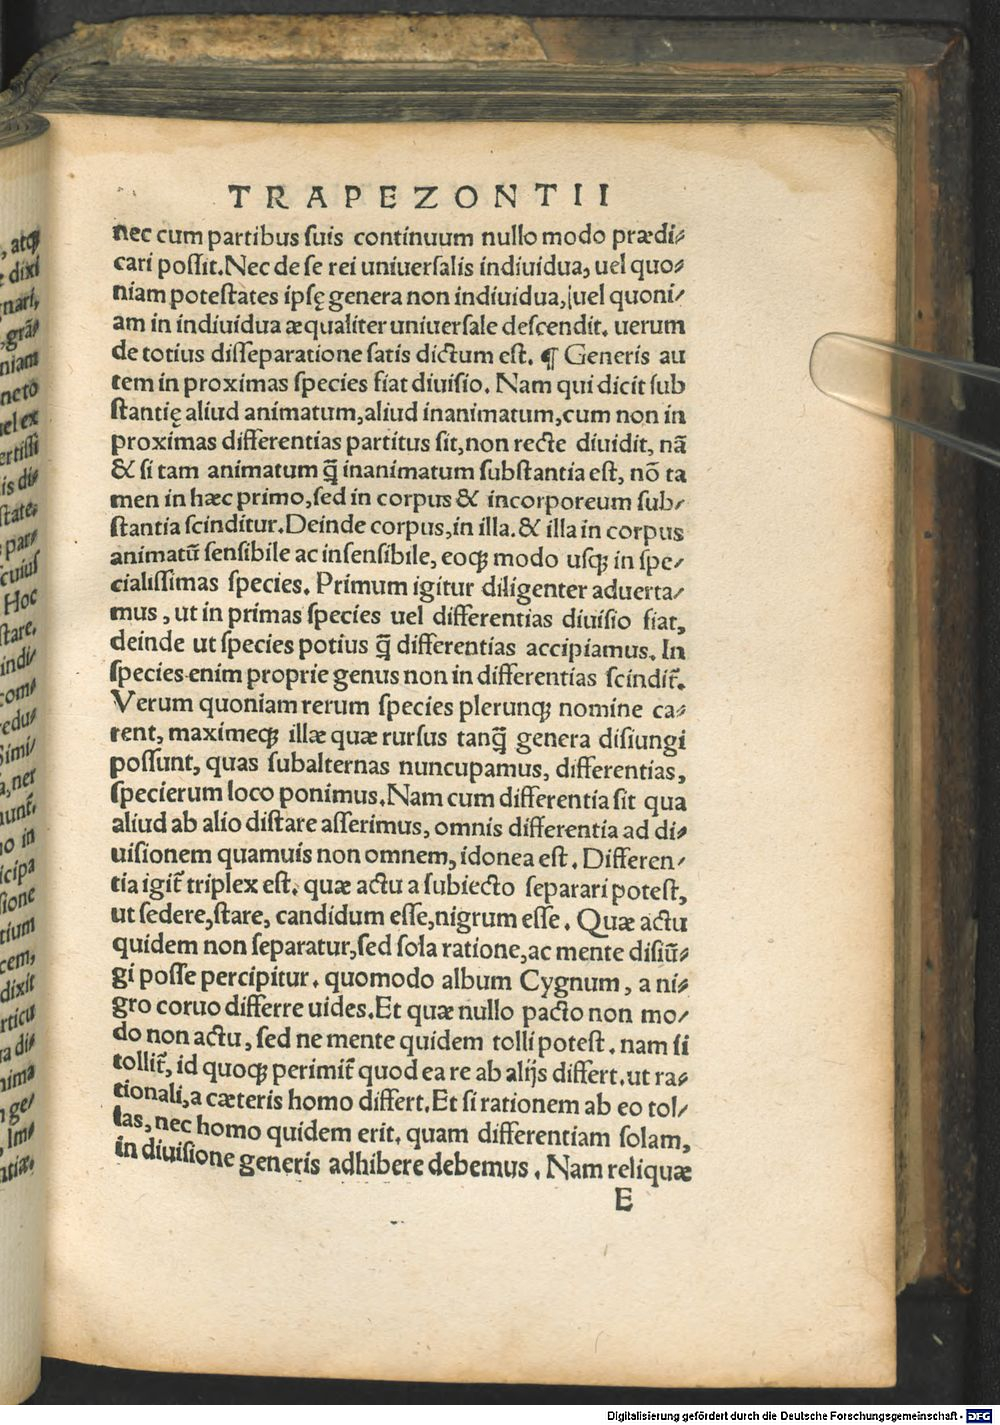 TRAPEZONTII
nec cum partibus ſuis continuum nullo modo prædi⸗
cari poſſit. Nec de ſe rei uniuerſalis indiuidua, uel quo⸗
niam poteſtates ipſę genera non indiuidua, uel quoni⸗
am in indiuidua æqualiter uniuerſale deſcendit. uerum
de totius diſſeparatione ſatis dictum eſt. ¶ Generis au
tem in proximas ſpecies fiat diuiſio. Nam qui dicit ſub
ſtantię aliud animatum, aliud inanimatum, cum non in
proximas differentias partitus ſit, non recte diuidit, nã
& ſi tam animatum q̃ inanimatum ſubſtantia eſt, nõ ta
men in hæc primo, ſed in corpus & incorporeum ſub⸗
ſtantia ſcinditur. Deinde corpus, in illa. & illa in corpus
animatũ ſenſibile ac inſenſibile, eoq; modo uſq; in ſpe⸗
cialiſſimas ſpecies. Primum igitur diligenter aduerta⸗
mus, ut in primas ſpecies uel differentias diuiſio fiat,
deinde ut ſpecies potius q̃ differentias accipiamus. In
ſpecies enim proprie genus non in differentias ſcindit᷑.
Verum quoniam rerum ſpecies plerunq; nomine ca⸗
rent, maximeq; illæ quæ rurſus tanq̃ genera diſiungi
poſſunt, quas ſubalternas nuncupamus, differentias,
ſpecierum loco ponimus. Nam cum differentia ſit qua
aliud ab alio diſtare aſſerimus, omnis differentia ad di⸗
uiſionem quamuis non omnem, idonea eſt. Differen⸗
tia igit᷑ triplex eſt. quæ actu a ſubiecto ſeparari poteſt,
ut ſedere, ſtare, candidum eſſe, nigrum eſſe. Quæ actu
quidem non ſeparatur, ſed ſola ratione, ac mente diſiũ⸗
gi poſſe percipitur. quomodo album Cygnum, a ni⸗
gro coruo differre uides. Et quæ nullo pacto non mo⸗
do non actu, ſed ne mente quidem tolli poteſt. nam ſi
tollit᷑, id quoq; perimit᷑ quod ea re ab alijs differt. ut ra⸗
tionali, a cæteris homo differt. Et ſi rationem ab eo tol⸗
las, nec homo quidem erit. quam differentiam ſolam,
in diuiſione generis adhibere debemus. Nam reliquæ
E
, atq;
dixi
gnari,
grã⸗
niam
neto
uel ex
ertiſſi
is di⸗
ſtate.
par⸗
cuiuſ
Hoc
ſtare.
indi⸗
com⸗
redu⸗
Simi⸗
a, nec
nunt᷑.
no in
icipa
ſione
tium
cem,
dixit
rticu
ra di⸗
nima
n ge⸗
, Im⸗
ntiæ.
Digitalisierung gefördert durch die Deutsche Forschungsgemeinschaft - DFG